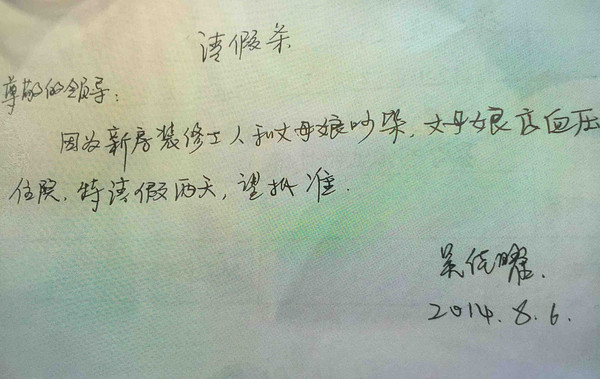 请假条
尊敬的领导：
因为新房装修工人和丈母娘吵架，丈母娘高血压
住院，特请假两天，望批准.
2014.8.6.